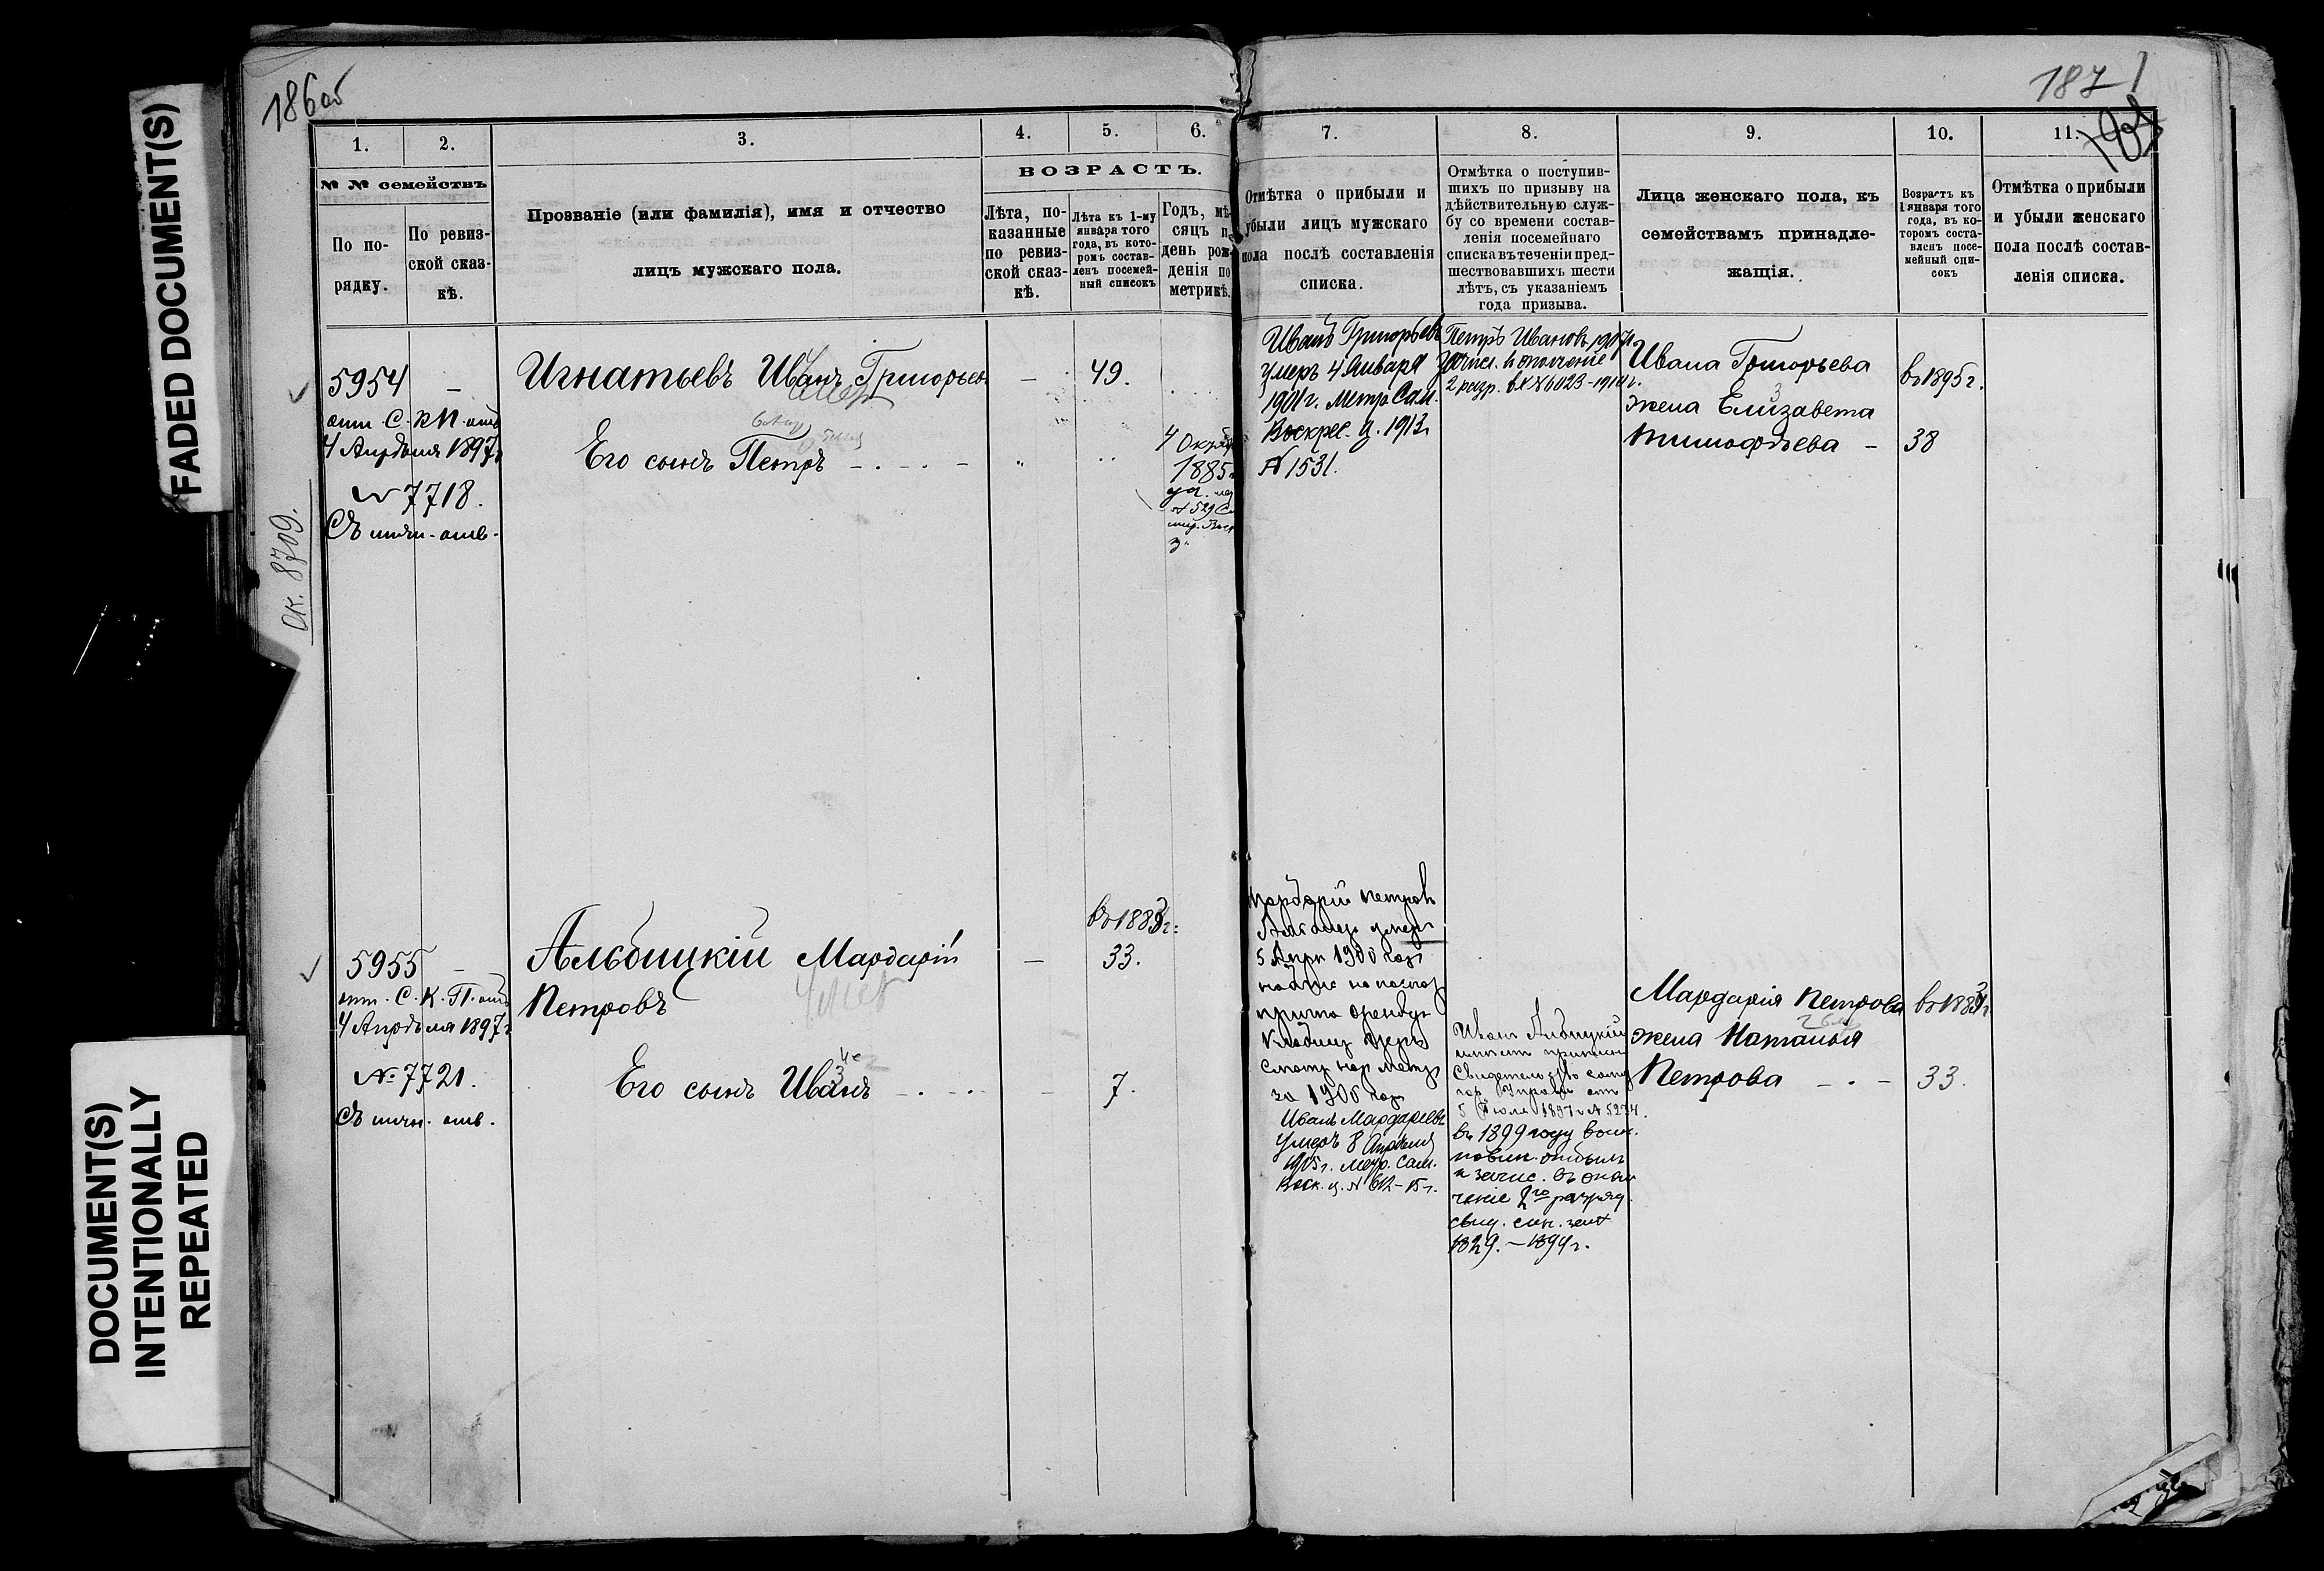 FADED DOCUMENT(S)
DOCUMENT(S)
INTENTIONALLY
REPEATED
186об
187
1.
2.
3.
4.
5.
6.
№ № семействъ
По по-
рядку.
По ревиз-
ской сказ-
кѣ.
Прозваніе (или фамилія), имя и отчество
лицъ мужскаго пола.
ВОЗРАСТЪ.
Лѣта, по-
казанные
по ревиз-
ской сказ-
кѣ.
Лѣта къ 1-му
января того
года, въ кото-
ромъ состав-
ленъ посемей-
ный списокъ
Годъ, мѣ-
сяцъ и
день рож-
денія по
метрикѣ.
7.
8.
9.
10.
11.
Отмѣтка о прибыли и
убыли лицъ мужскаго
пола послѣ составленія
списка.
Отмѣтка о поступив-
шихъ по призыву на
дѣйствительную служ-
бу со времени состав-
ленія посемейнаго
списка въ теченіи пред-
шествовавшихъ шести
лѣтъ, съ указаніемъ
года призыва.
Лица женскаго пола, къ
семействамъ принадле-
жащія.
Возрастъ къ
1 января того
года, въ ко-
торомъ соста-
вленъ посе-
мейный спи-
сокъ
Отмѣтка о прибыли
и убыли женскаго
пола послѣ состав-
ленія списка.
5954 –
4 Апрѣля 1897
№ 7718.
Ск. 8709.
Игнатьевъ Иванъ Григорьев
умер
– 49.
Его сынъ Петръ
4 Октяб
1885
Иванъ Григорьевъ
умеръ 4 Января
1901 г. Метр. Сам.
Воскрес. ц. 1913 г.
№ 1531.
Петръ Ивановъ
2 разр.
Ивана Григорьева
жена Елизавета
Тимофѣева – 38
въ 1895 г.
5955 –
отн. С. К. П. отъ
4 Апрѣля 1897 г.
№ 7721.
Альбицкій Мардарій
Петровъ
умер
въ 1883 г.
33.
Его сынъ Иванъ
7.
Мардарій Петровъ
умеръ
5 Апр 1900 год
за 1900 год
Иванъ Мардарьевъ
умеръ 8 Апрѣля
1915 г. метр. Сам.
Воск. ц. № 612 – 15 г.
Иванъ Альбицкій
Свидетельство
5 Іюля 1897
въ 1899 году воин.
повин. отбылъ
и зачис. въ опол
ченіе 2го разряд.
1829. – 1899 г.
Мардарія Петрова
жена Наталья
Петрова – 33.